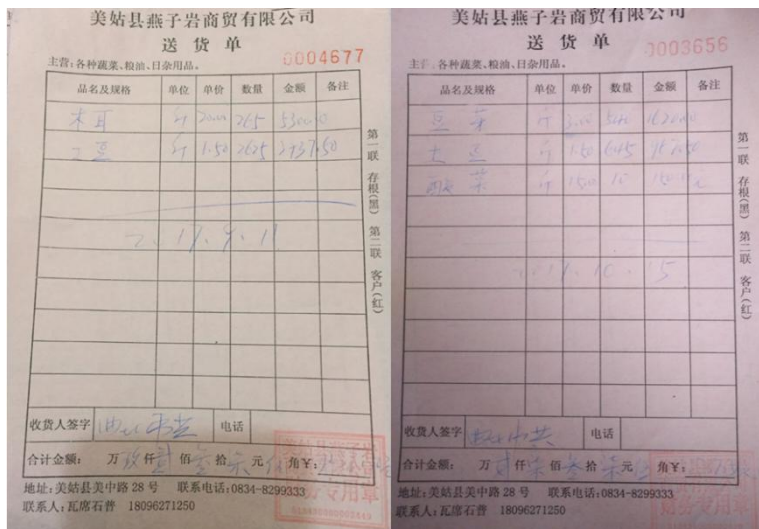 美姑县燕子岩商贸有限公司
送货单
0004677
主营:各种蔬菜、粮油、日杂用品。
品名及规格 单位 单价 数量 金额 备注
木耳 斤 20.00 265 5300.0
土豆 斤 1.50 2625 3937.50
2019.9.11
第一联 存根(黑) 第二联 客户(红)
收货人签字 电话
合计金额: 万 仟 佰 拾 元 角¥:
地址:美姑县美中路28号 联系电话:0834-8299333
联系人:瓦席石普 18096271250
美姑县燕子岩商贸有限公司
送货单
0003656
主营:各种蔬菜、粮油、日杂用品。
品名及规格 单位 单价 数量 金额 备注
豆芽 斤 3.00 540 1620.00
土豆 斤 1.50
菜 斤 15.0 10
第一联 存根(黑) 第二联 客户(红)
收货人签字 电话
合计金额: 万 仟 佰 拾 元 角¥:
地址:美姑县美中路28号 联系电话:0834-8299333
联系人:瓦席石普 18096271250